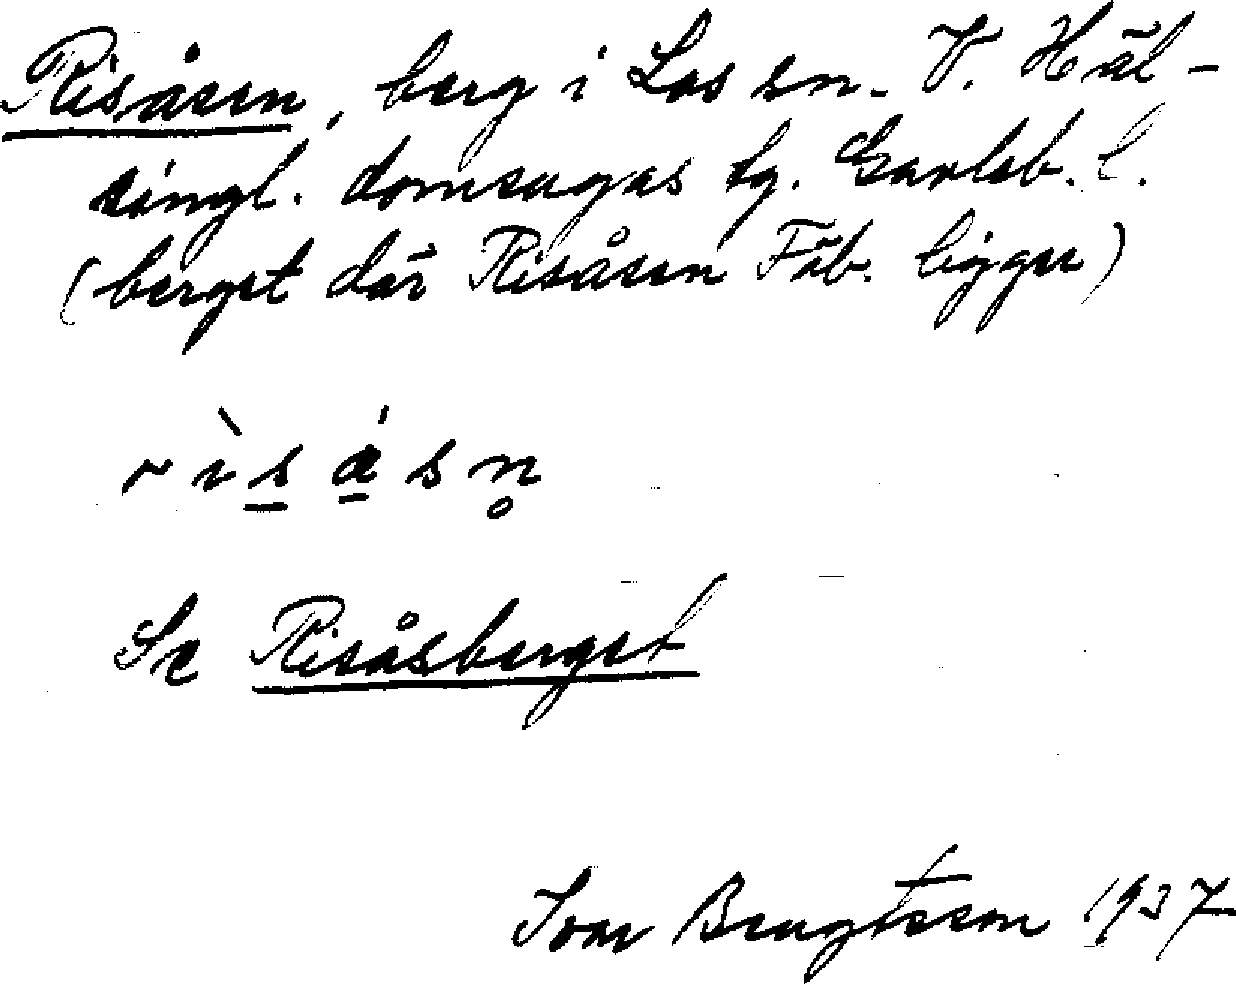 Risåsen, berg i Los sn. V. Häl-
singl. domsagas tg. Gävleb. l.
(berget där Risåsen Fäb. ligger)
rìsásn̥
Se Risåsberget
Ivar Bengtsson 1937